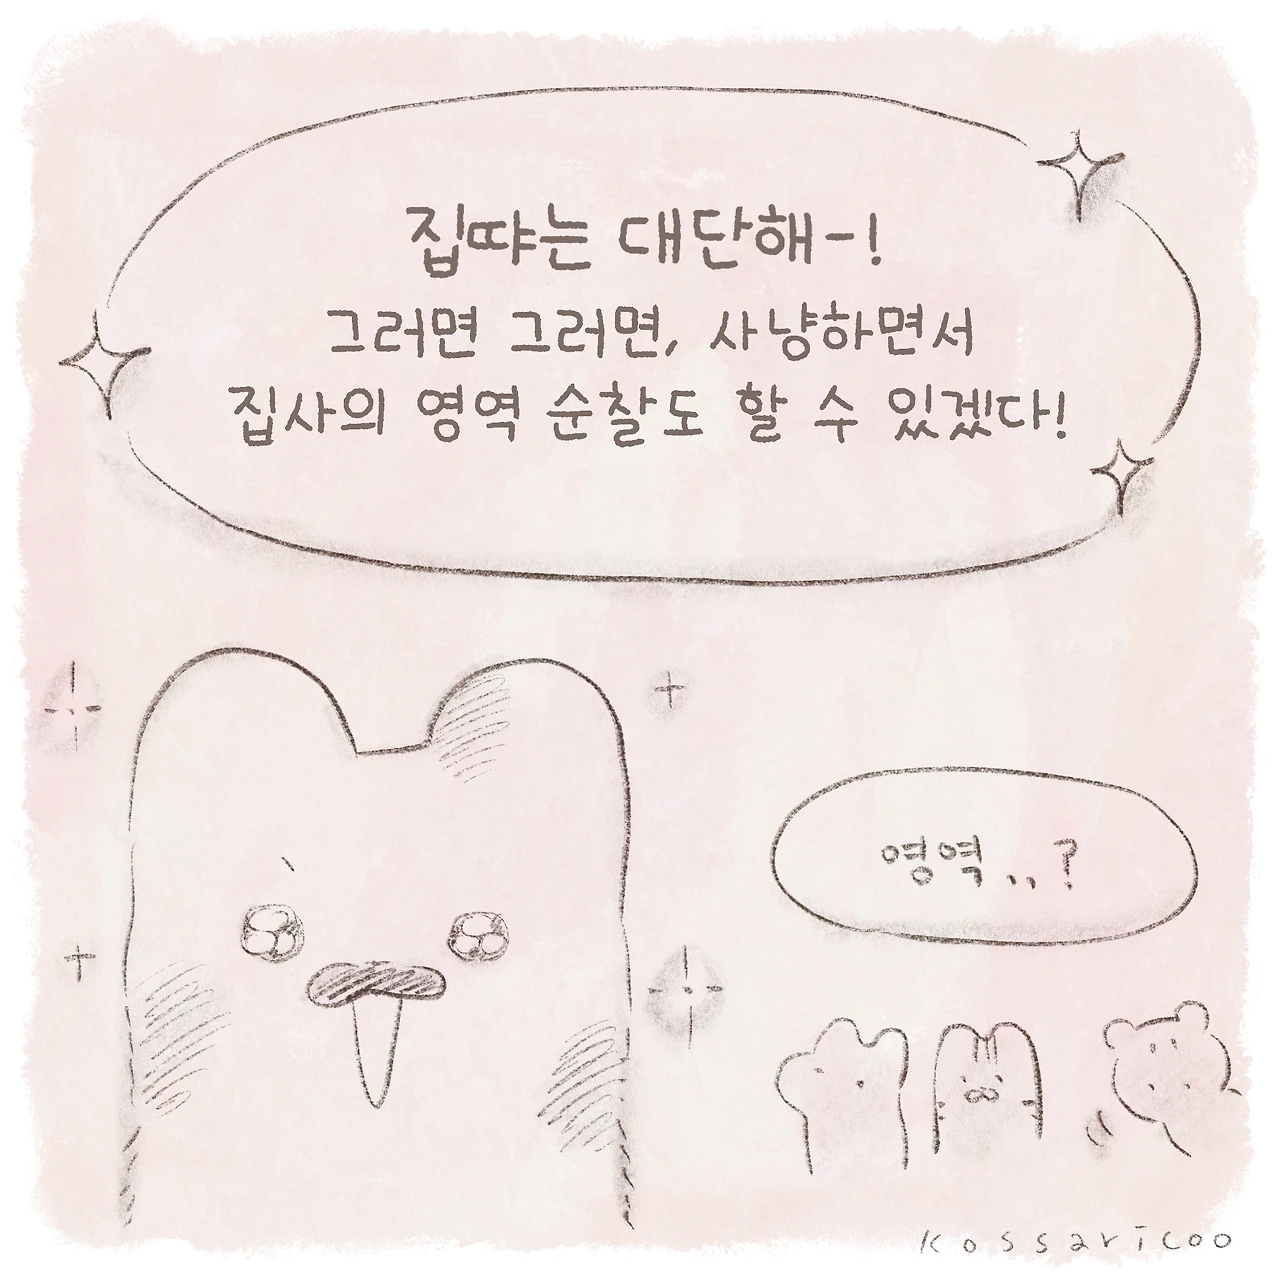 집땨는 대단해-!
그러면 그러면, 사냥하면서
집사의 영역 순찰도 할 수 있겠다!
영역..?
kossaricoo